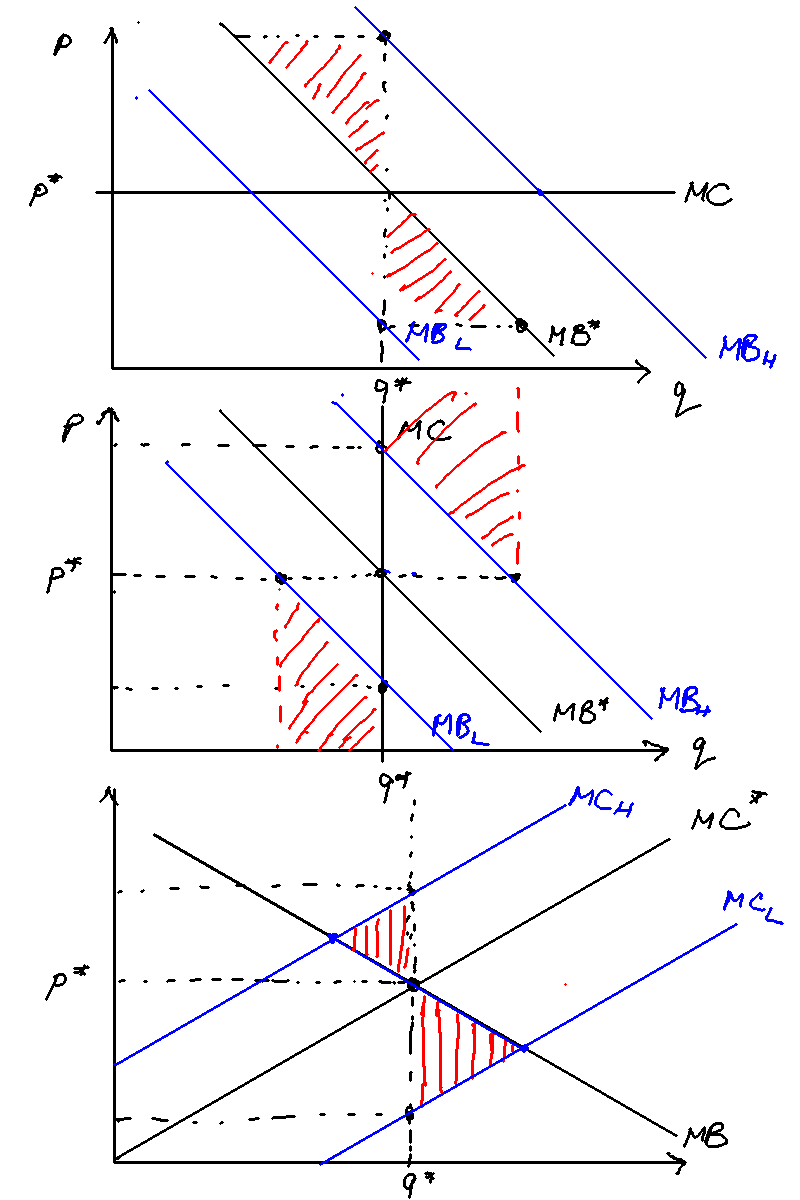 P
P*
MC
MB_L
MB*
MB_H
q*
q
P
MC
P*
MB_L
MB*
MB_H
q*
q
MC_H
MC*
MC_L
P*
MB
q*